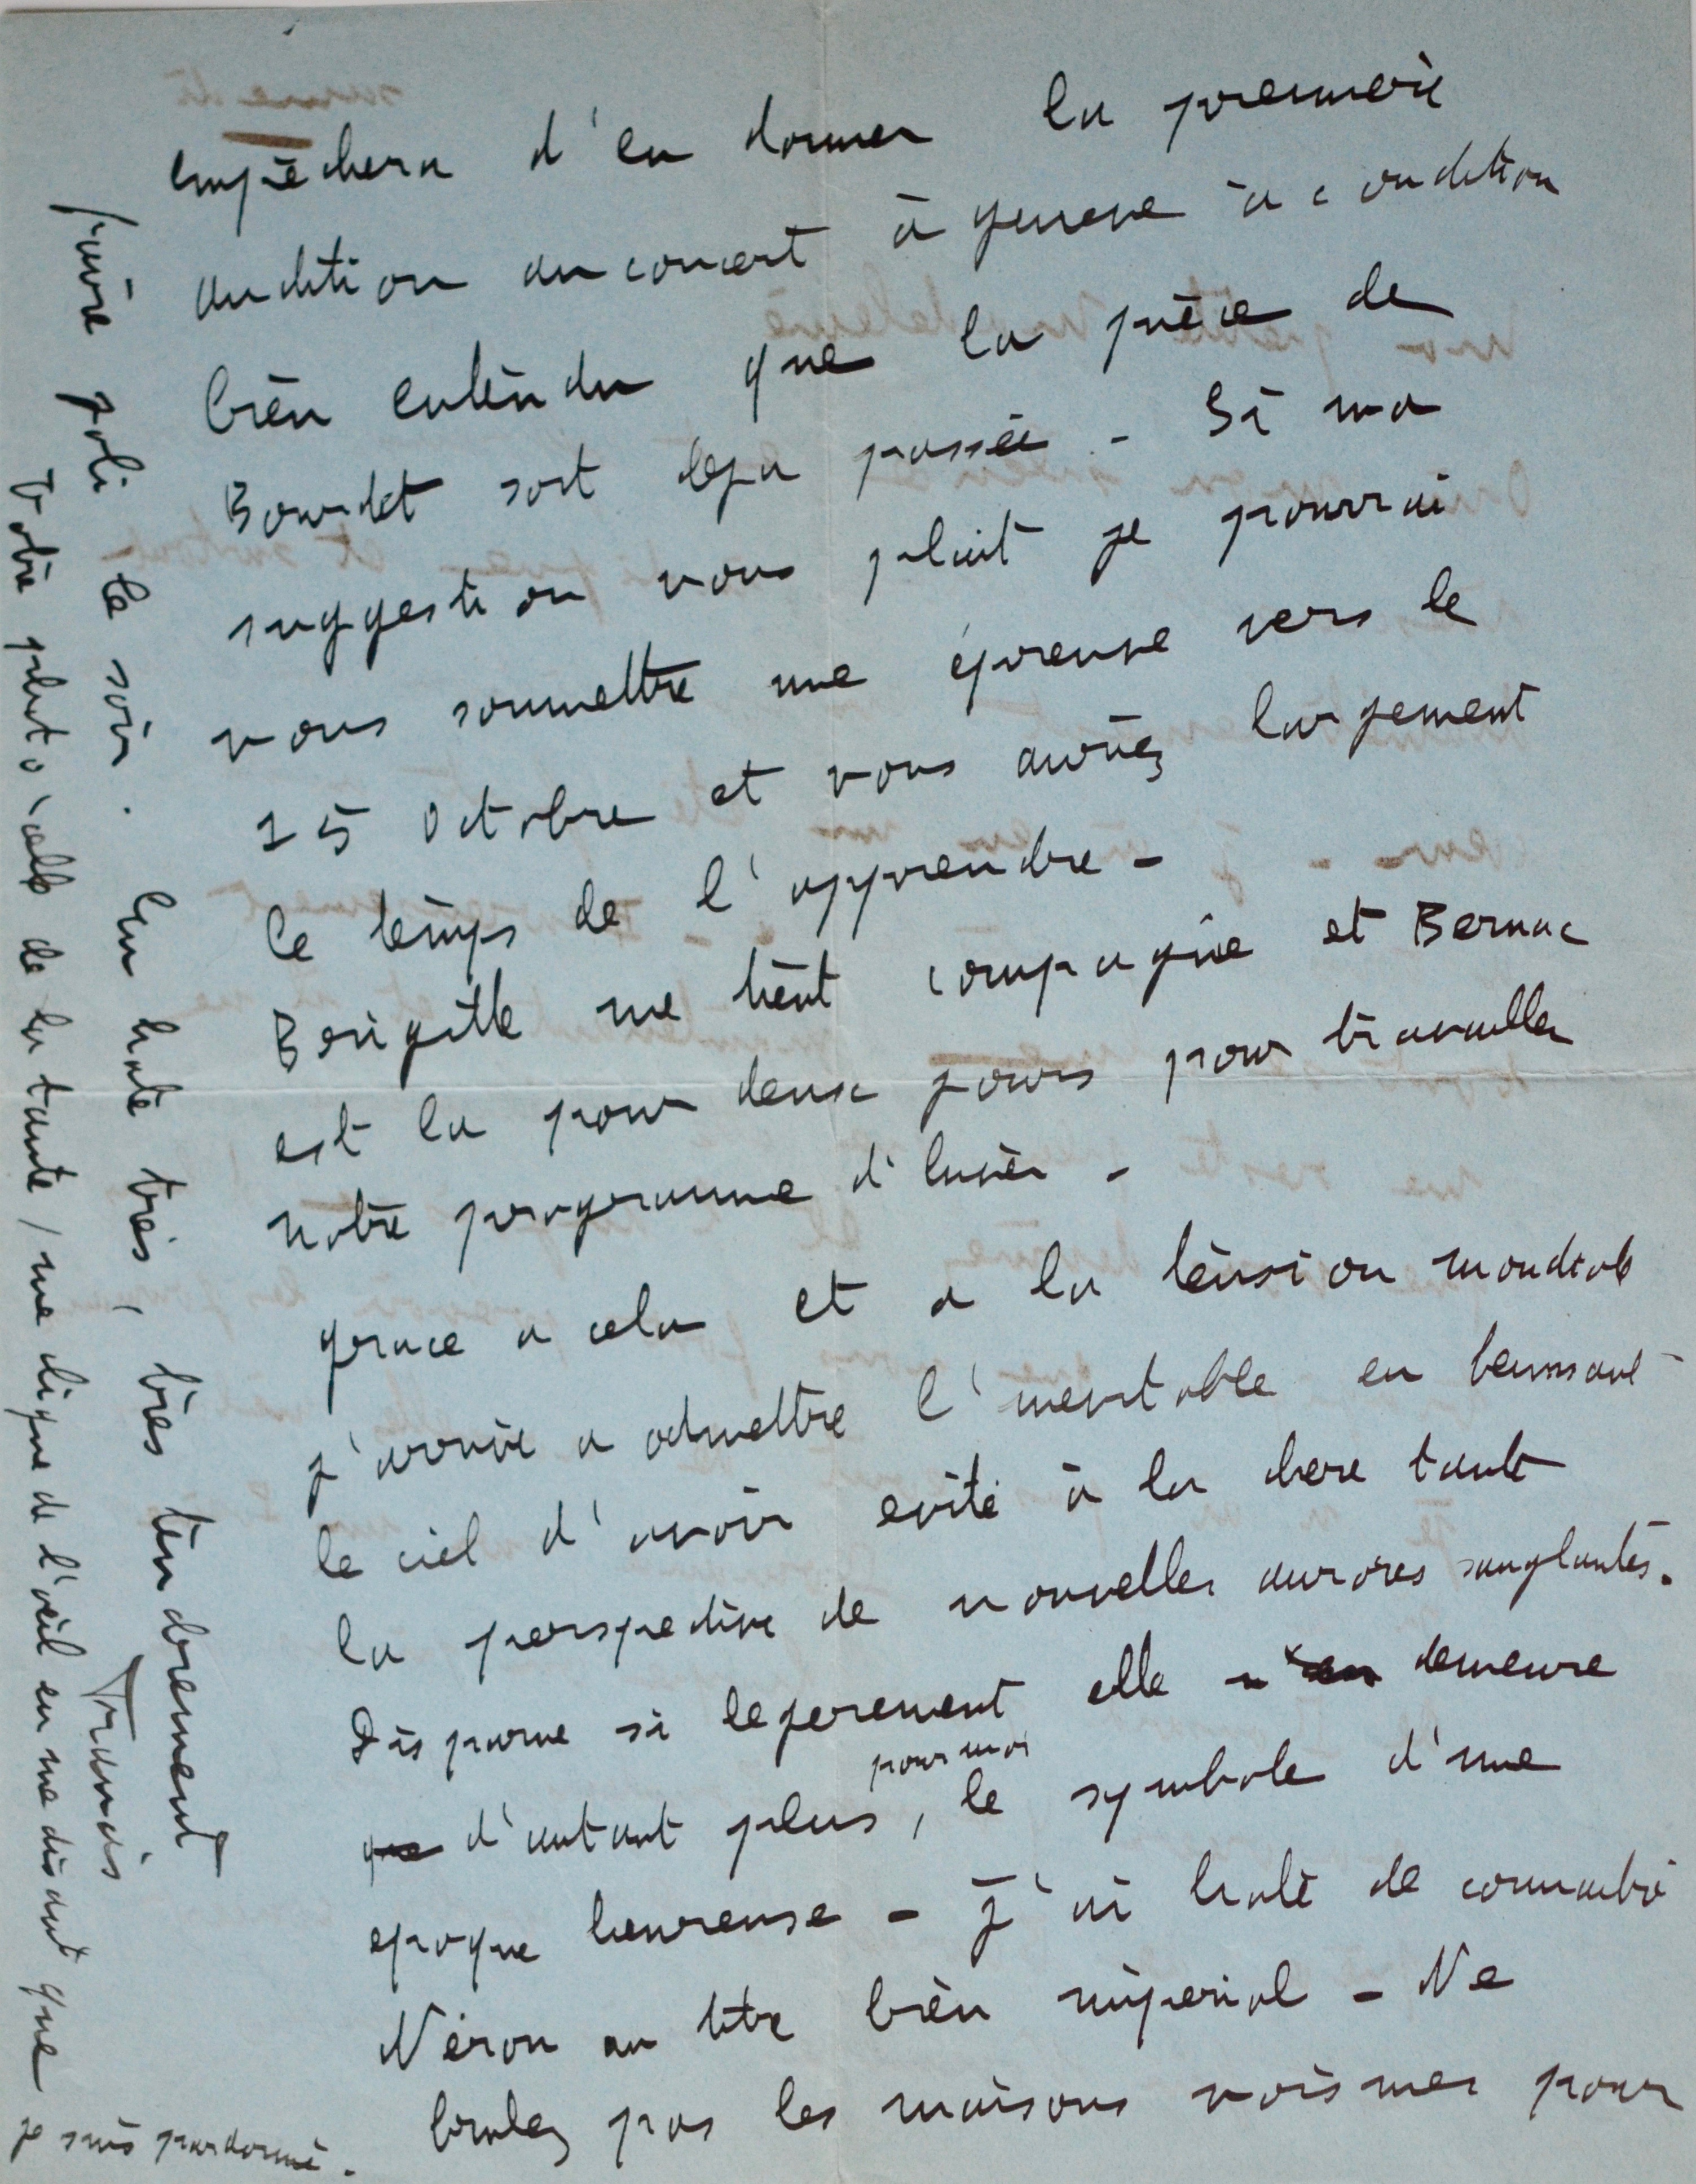 empêchera d'en donner la première
audition au concert à geneve à condition
bien entendu que la pièce de
Bourdet soit deja passée - Si ma
suggestion vous plait je pourrai
vous soumettre une épreuve vers le
15 Octobre et vous auriez largement
le temps de l'apprendre -
Brigitte me tient compagnie et Bernac
est la pour deux jours pour travailler
notre programme d'hiver -
grace a cela et a la tension mondiale
j'arrive a admettre l'inevitable en benissant
le ciel d'avoir evité à la chere tante
la perspective de nouvelles aurores sanglantes.
Disparue si legerement elle demeure
d'autant plus, pour moi le symbole d'une
epoque heureuse - J'ai hate de connaitre
Néron au titre bien impérial - Ne
brulez pas les maisons voisines pour
faire joli le soir. En hate très, très tendrement
Francis
Votre photo celle de la tante / me cligne de l'œil en me disant que
je suis pardonné.